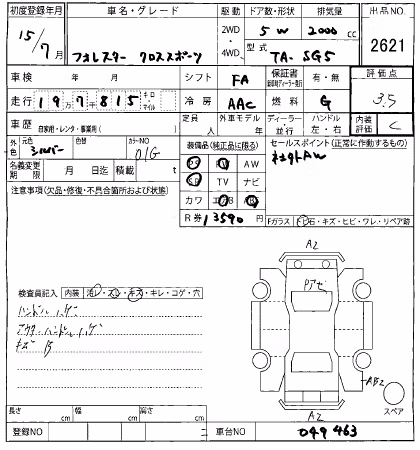 初度登録年月 車名・グレード 駆動 ドア数・形状 排気量 出品NO.
15/7月 フォレスター クロススポーツ 2WD・4WD 5 W 2000 cc 2621
型式 TA-SG5
車検 年 月 シフト FA 保証書 有・無 評価点
走行 197千815 キロ マイル 冷房 AAC 燃料 G 3.5
車歴 自家用・レンタ・事業用( ) 定員 人 外車モデル 年 ディーラー・並行 ハンドル 左・右 内装評価 C
外色 元色 シルバー 色替 カラーNO 01G 装備品(純正品に限る) セールスポイント(正常に作動するもの)
社外AW
名義変更期限 月 日迄 積載 t PS PW AW
注意事項(欠品・修復・不具合箇所および状態) SR TV ナビ
カワ エアB AB
R券 13590 円 Fガラス 石・キズ・ヒビ・ワレ・リペア跡
A2
Pアゼ
検査員記入 内装 汚レ・スレ・キズ・キレ・コゲ・穴
ハンドル ハゲ
アウターハンドル ハゲ
キズ B
AB2
スペア
長さ cm 幅 cm 高さ cm A2
登録NO 車台NO 049463